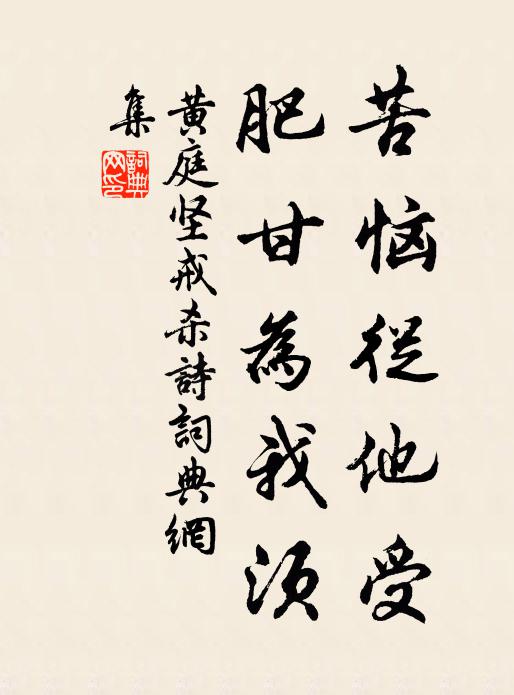 苦恼從他受
肥甘為我須
黄庭坚戒杀詩詞典網
集
詞典
网印